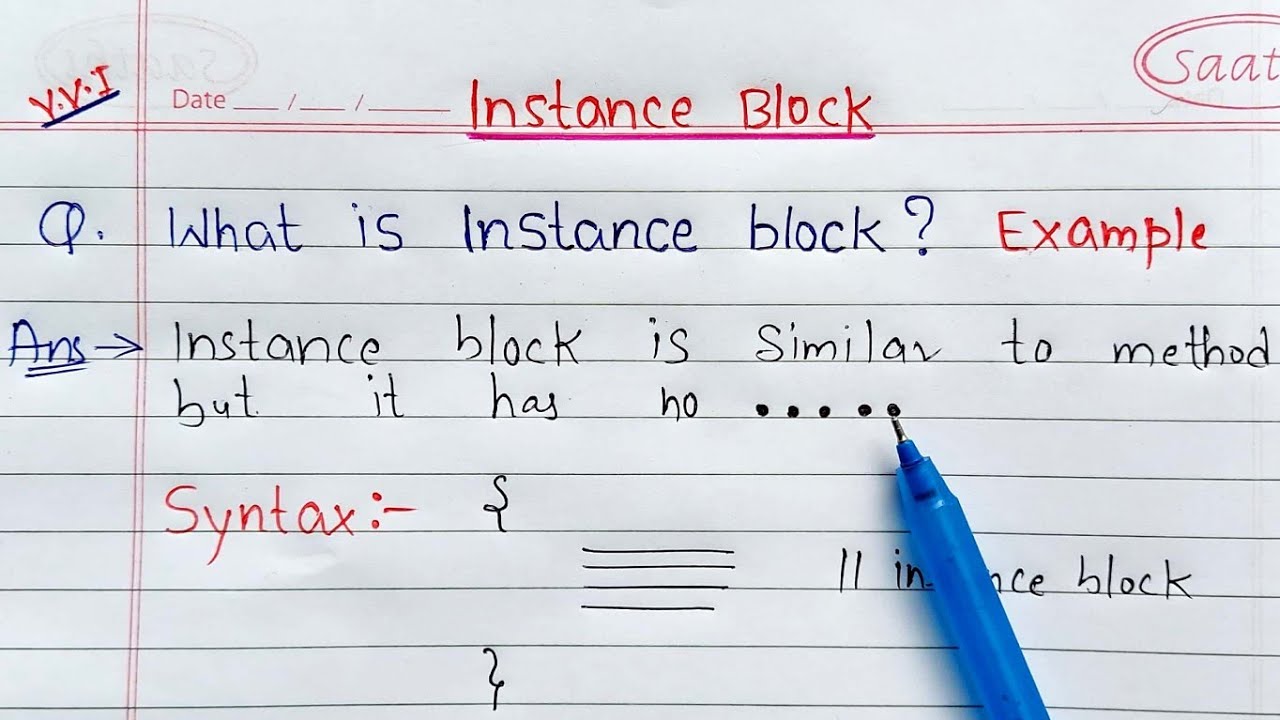 V.V.I
Date __ / __ / ____
Instance Block
Saat
Q. What is Instance block? Example
Ans → Instance block is Similar to method
but it has no .....
Syntax:- {
// in nce block
}